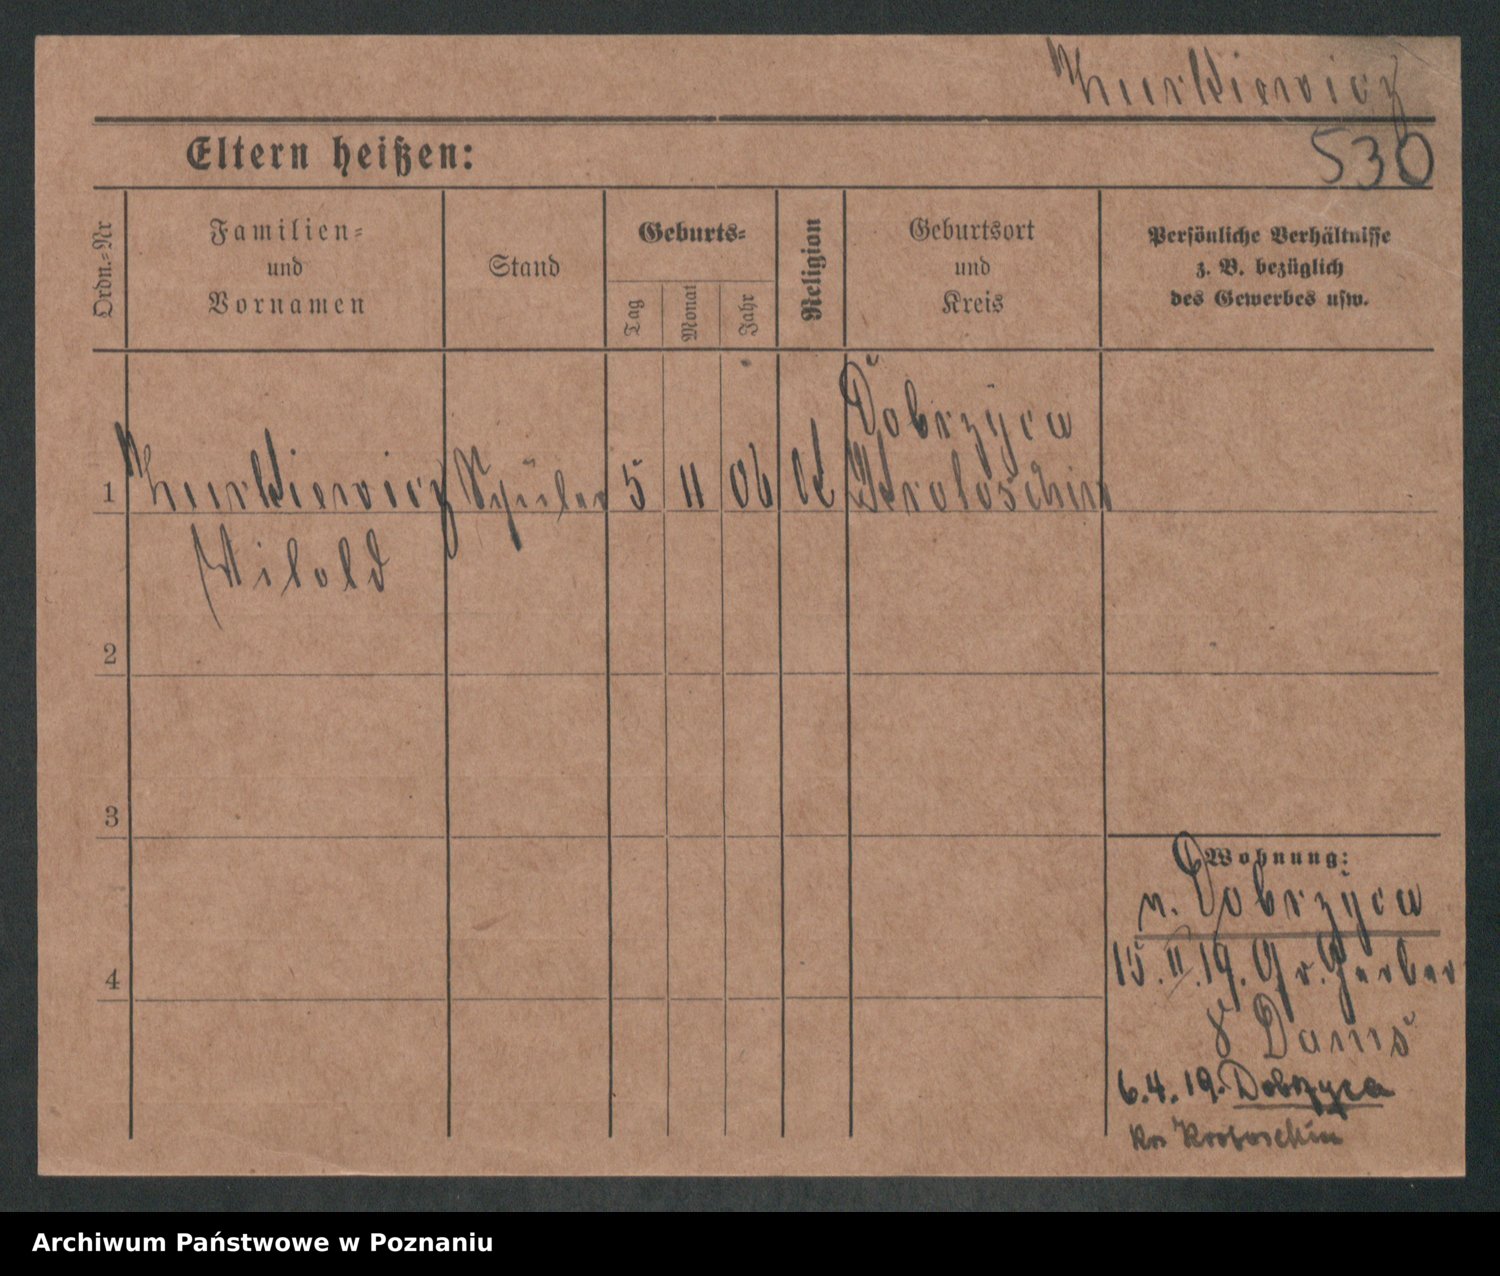 Kurkiewicz
530
Eltern heißen:
Ordn.=Nr
Familien=
und
Vornamen
Stand
Geburts=
Tag
Monat
Jahr
Religion
Geburtsort
und
Kreis
Persönliche Verhältnisse
z. B. bezüglich
des Gewerbes usw.
Dobrzyca
1 Kurkiewicz Schüler 5 11 06 k Krotoschin
Witold
2
3
4
Wohnung:
v. Dobrzyca
15. II. 19. Gr. Gerber
8 Dams
6.4.19. Dobrzyca
Krs Krotoschin
Archiwum Państwowe w Poznaniu